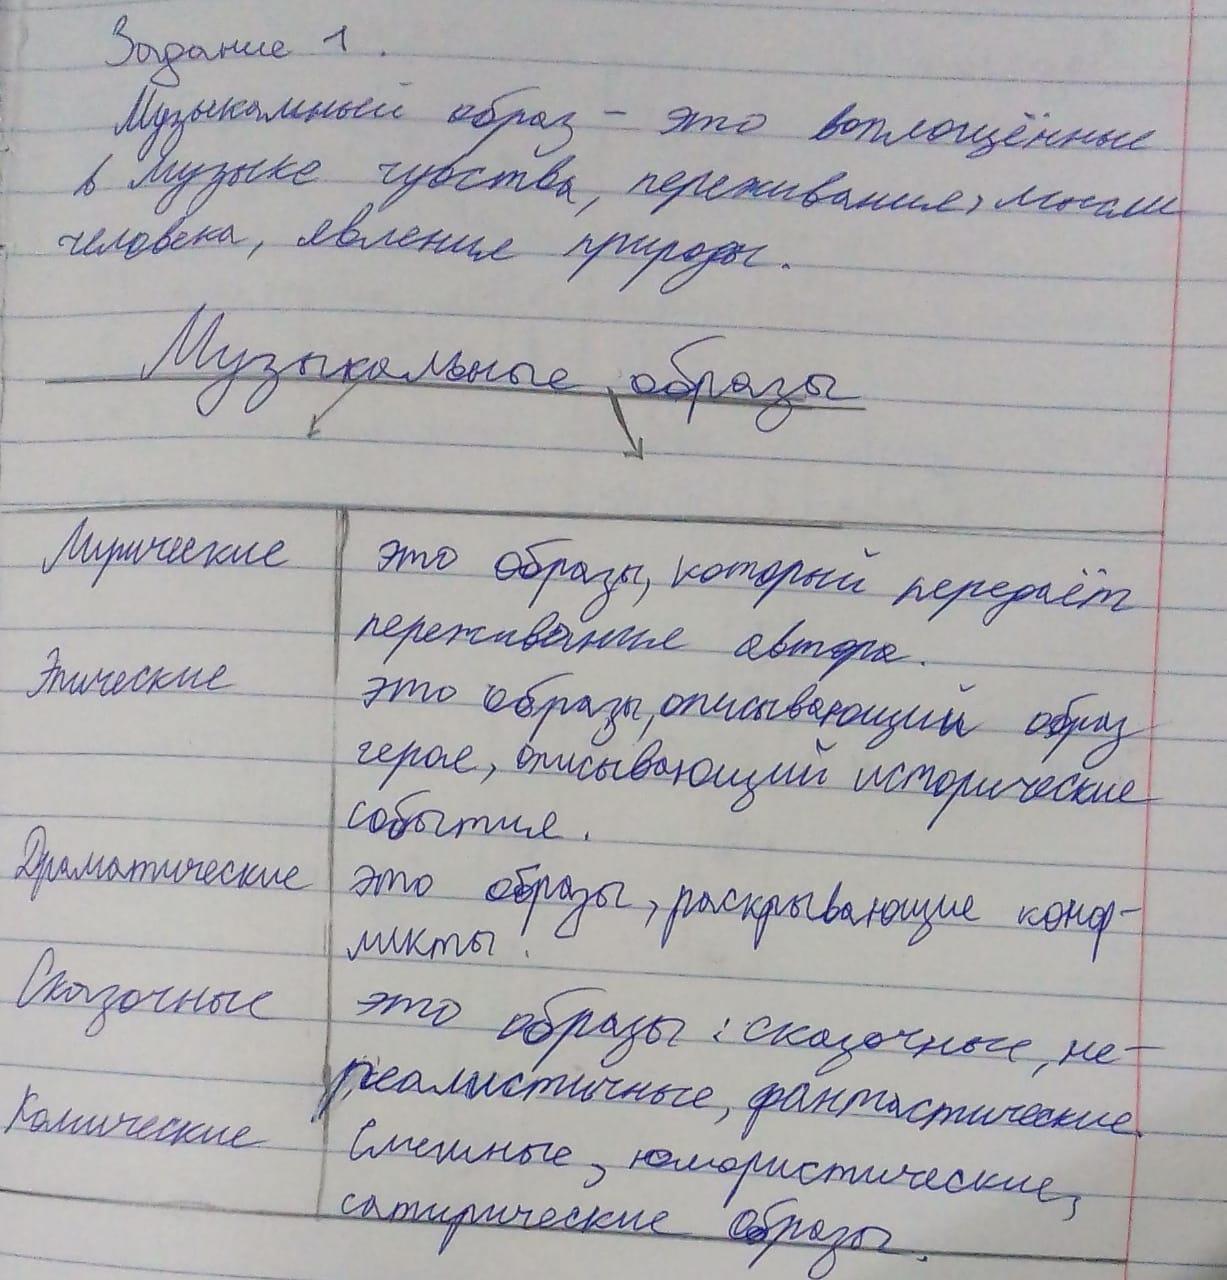 Задание 1.
Музыкальный образ – это воплощённые
в музыке чувства, переживания, мысли
человека, явления природы.
Музыкальные образы
Лирические это образы, который передаёт
переживания автора.
Эпические это образы, описывающий образ
героя, описывающий исторические
события.
Драматические это образы, раскрывающие конф-
ликты.
Сказочные это образы: сказочные, не-
реалистичные, фантастические.
Комические Смешные, юмористические,
сатирические образы.